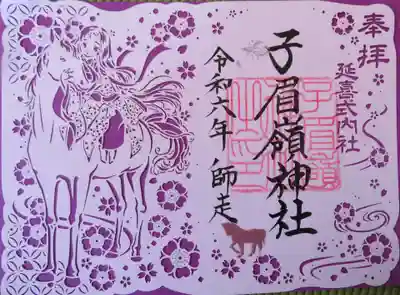 奉拝
延喜式内社
子眉嶺神社
令和六年 師走